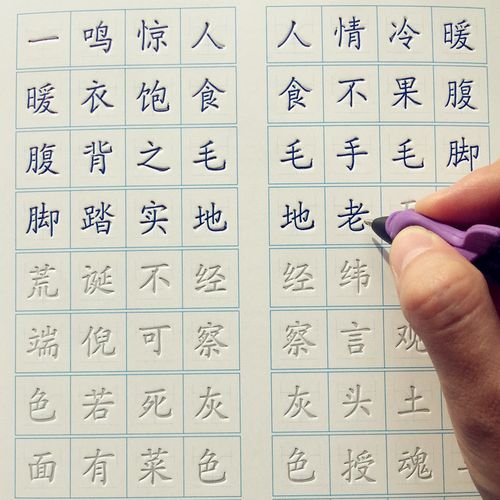 一鸣惊人 人情冷暖
暖衣饱食 食不果腹
腹背之毛 毛手毛脚
脚踏实地 地老
荒诞不经 经纬
端倪可察 察言观
色若死灰 灰头土
面有菜色 色授魂